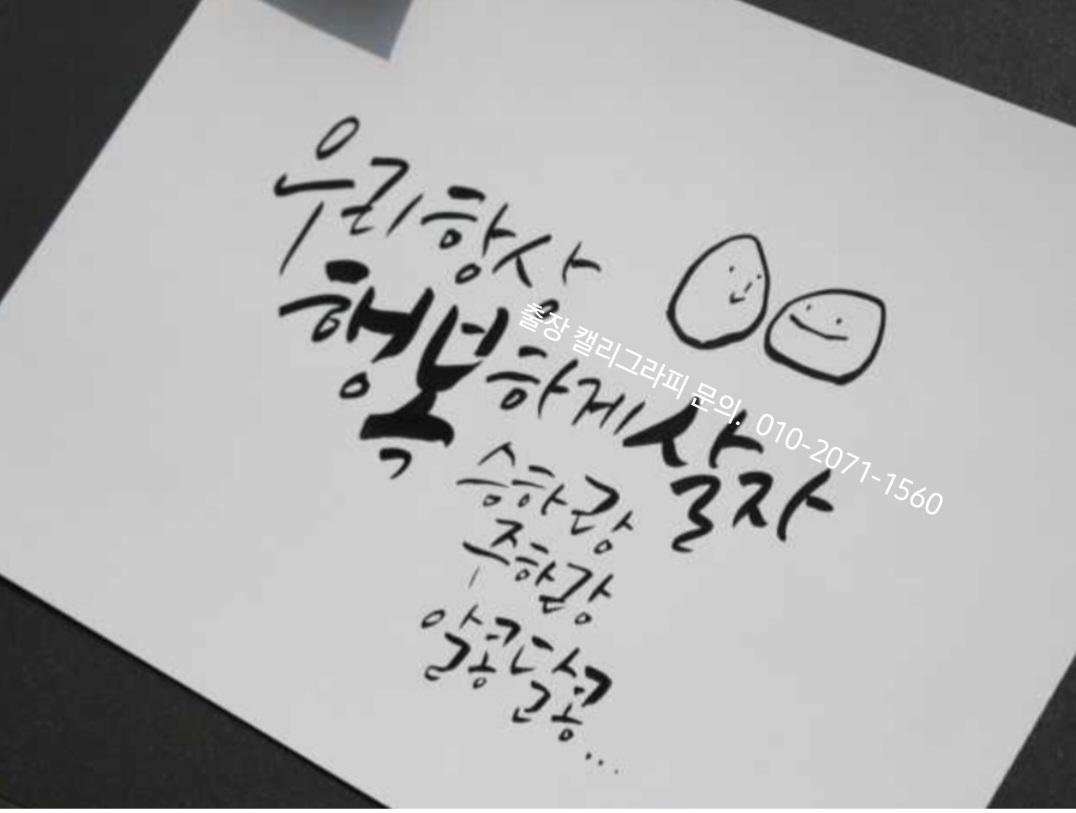 우리 항상
행복하게 살자
승하랑
주한랑
알콩달콩...
출장 캘리그라피 문의. 010-2071-1560